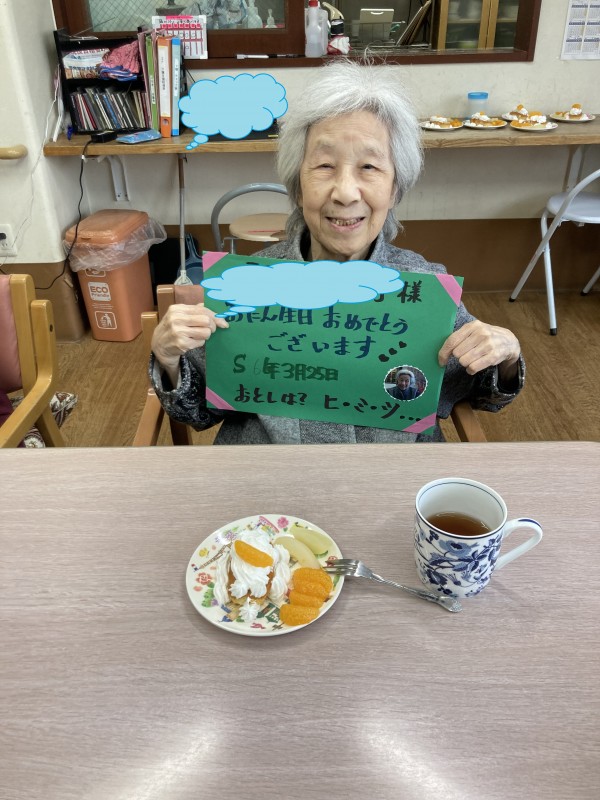 様
おたん生日 おめでとう
ございます
S6年3月25日
おとしは? ヒ・ミ・ツ...
ECO
Friendly